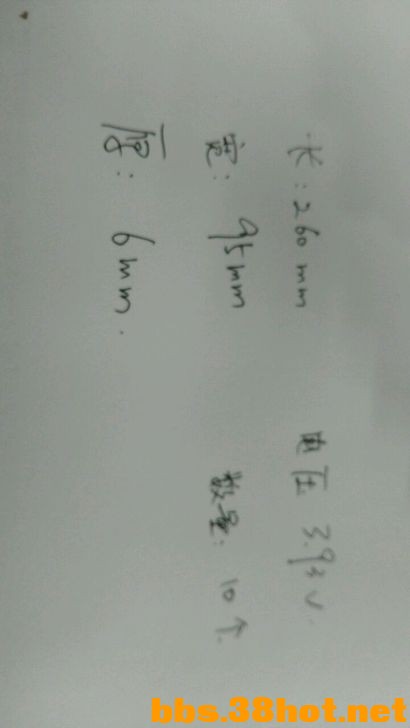 长：260mm 电压 3.93V.
宽：95mm 数量：10个
厚：6mm.
bbs.38hot.net